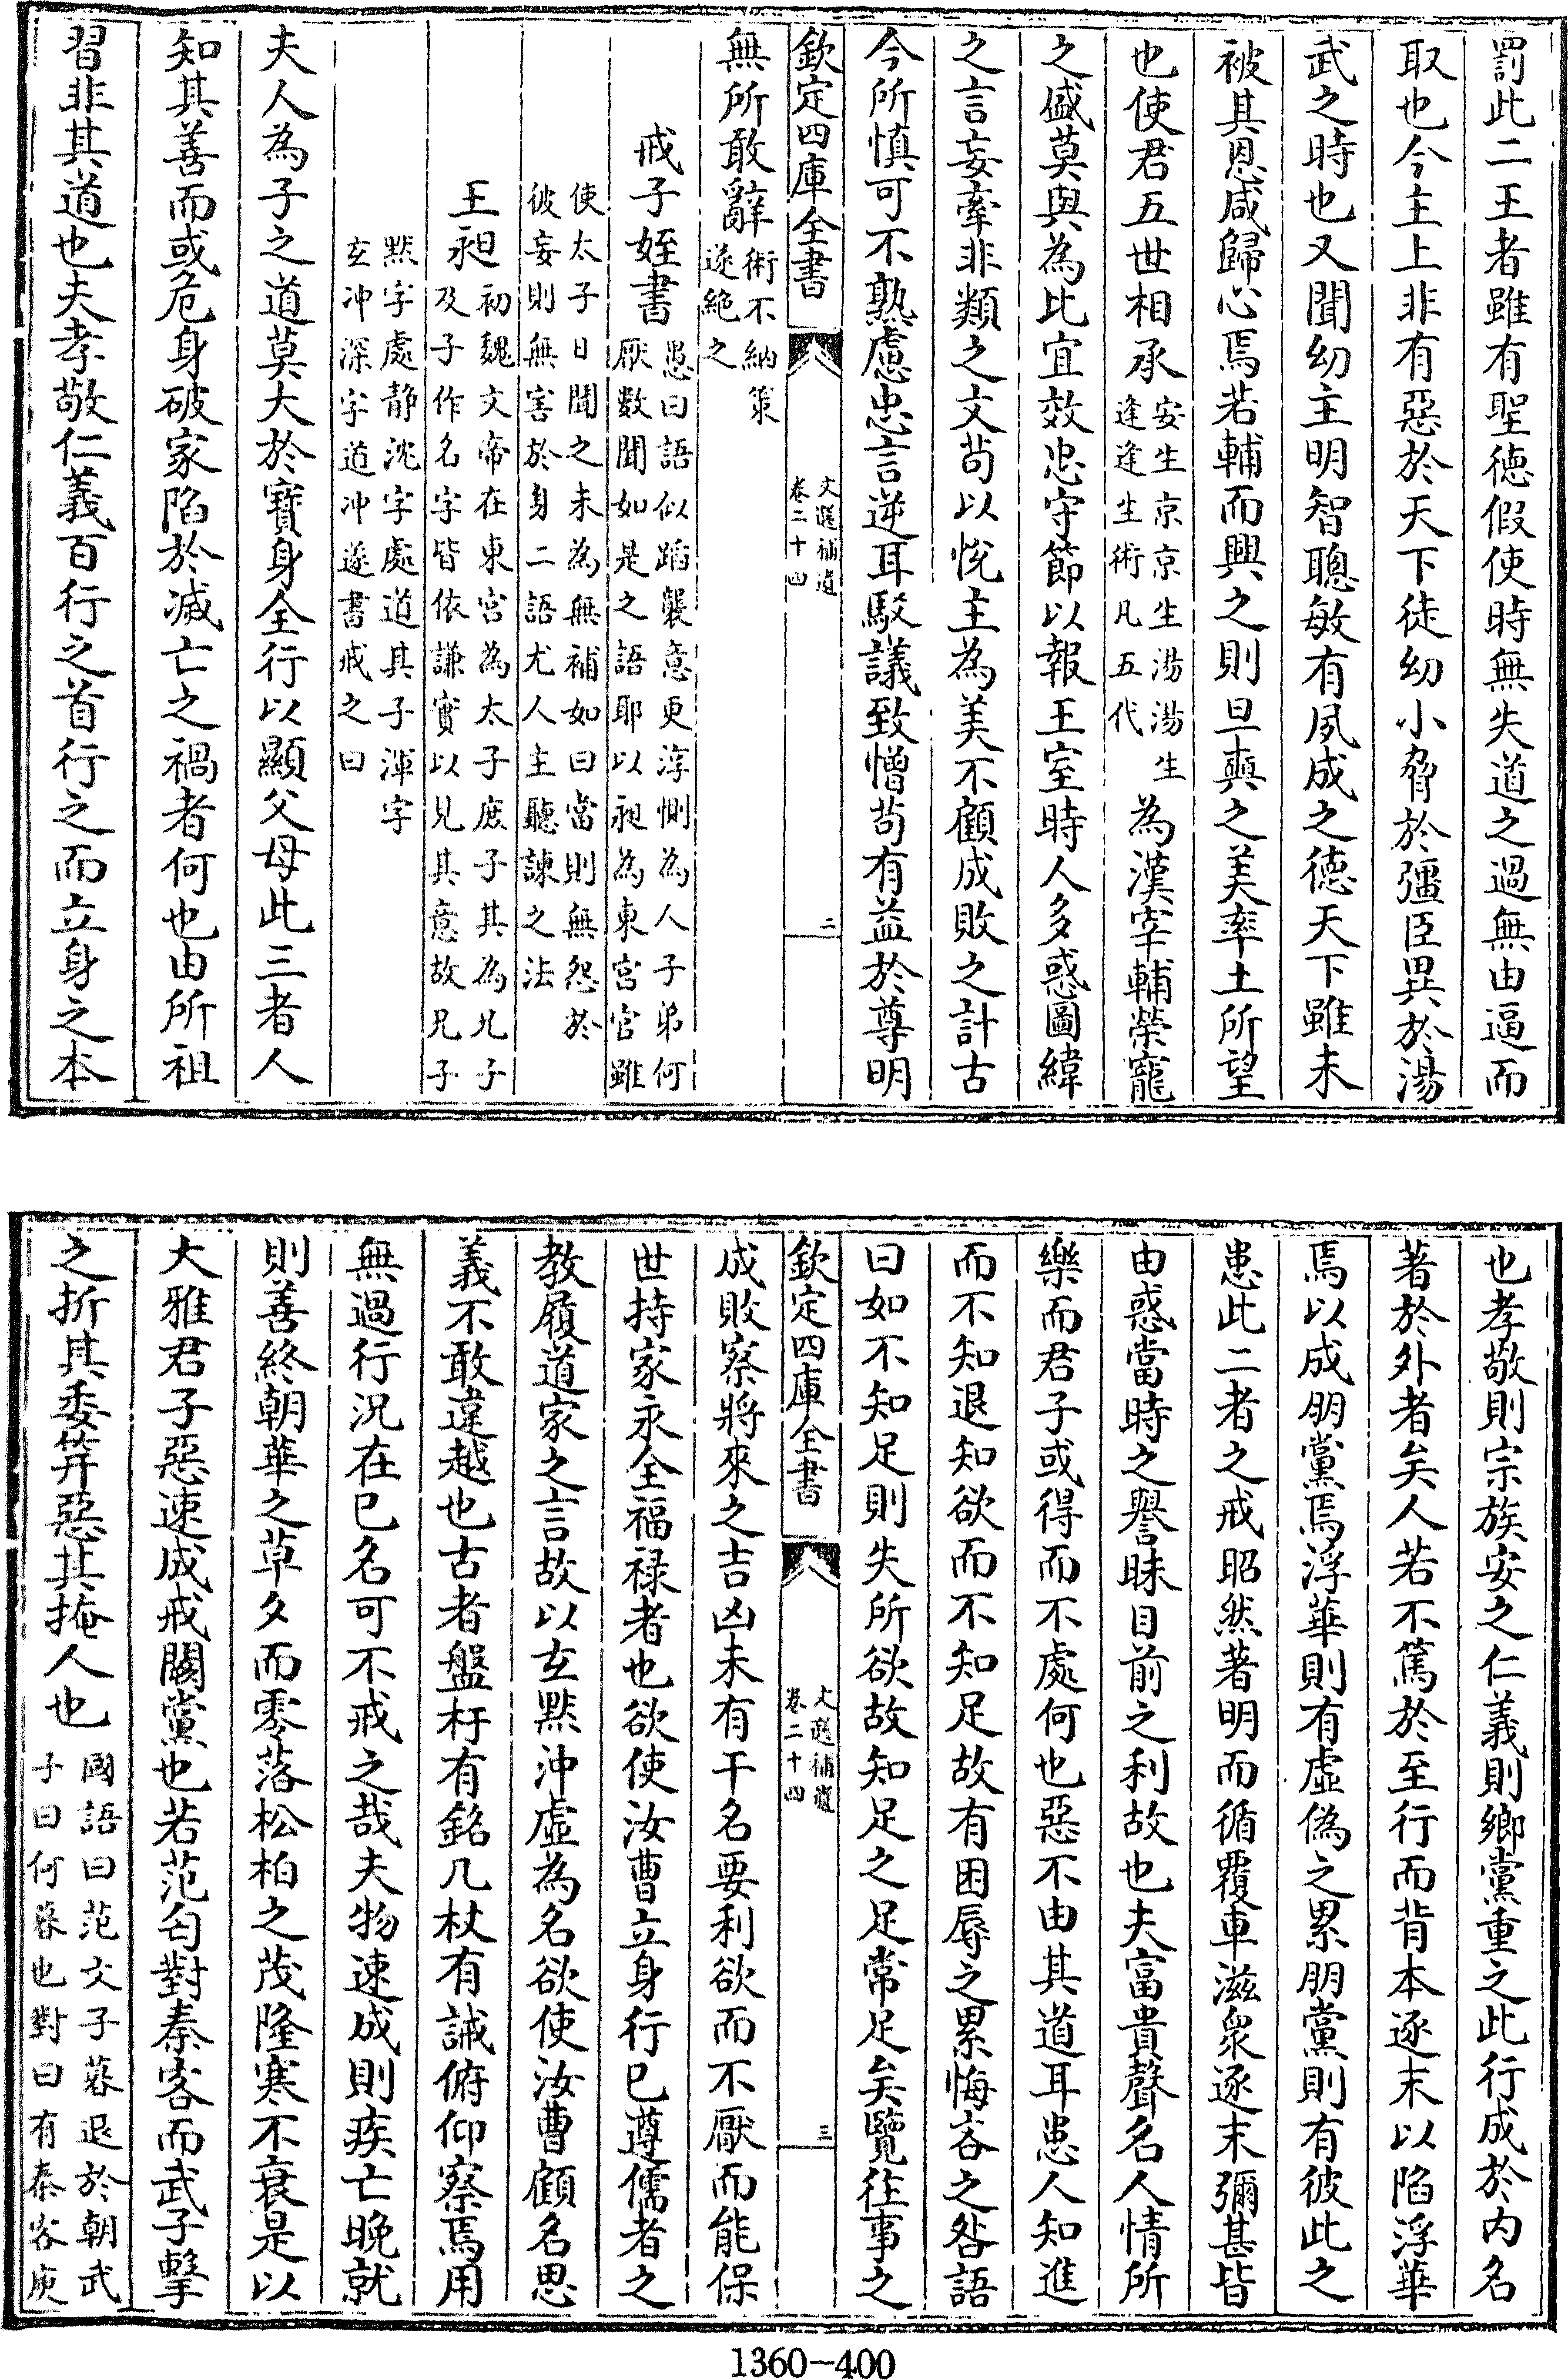 罰此二王者雖有聖徳假使時無失道之過無由逼而
取也今主上非有惡於天下徒幼小脅於彊臣異於湯
武之時也又聞幼主明智聰敏有夙成之徳天下雖未
被其恩咸歸心焉若輔而興之則旦奭之美率土所望
也使君五世相承安生京京生湯湯生
逢逢生術凡五代為漢宰輔榮寵
之盛莫與為比宜效忠守節以報王室時人多惑圖緯
之言妄牽非類之文茍以悦主為美不顧成敗之計古
今所慎可不熟慮忠言逆耳駁議致憎茍有益於尊明
欽定四庫全書
文選補遺
卷二十四
二
無所敢辭術不納策
遂絶之
戒子姪書愚曰語似蹈襲意更淳惻為人子弟何
厭數聞如是之語耶以昶為東宮官雖
使太子日聞之未為無補如曰當則無怨於
彼妄則無害於身二語尤人主聽諫之法
王昶初魏文帝在東宮為太子庶子其為兄子
及子作名字皆依謙實以見其意故兄子
黙字處静沈字處道其子渾字
玄冲深字道冲遂書戒之曰
夫人為子之道莫大於寶身全行以顯父母此三者人
知其善而或危身破家陷於滅亡之禍者何也由所祖
習非其道也夫孝敬仁義百行之首行之而立身之本
也孝敬則宗族安之仁義則鄉黨重之此行成於内名
著於外者矣人若不篤於至行而背本逐末以陷浮華
焉以成朋黨焉浮華則有虚偽之累朋黨則有彼此之
患此二者之戒昭然著明而循覆車滋衆逐末彌甚皆
由惑當時之譽昧目前之利故也夫富貴聲名人情所
樂而君子或得而不處何也惡不由其道耳患人知進
而不知退知欲而不知足故有困辱之累悔吝之咎語
曰如不知足則失所欲故知足之足常足矣覽往事之
欽定四庫全書
文選補遺
卷二十四
三
成敗察將來之吉凶未有干名要利欲而不厭而能保
世持家永全福禄者也欲使汝曹立身行已遵儒者之
教履道家之言故以玄黙沖虚為名欲使汝曹顧名思
義不敢違越也古者盤杅有銘几杖有誡俯仰察焉用
無過行況在已名可不戒之哉夫物速成則疾亡晩就
則善終朝華之草夕而零落松柏之茂隆寒不衰是以
大雅君子惡速成戒闕黨也若范匄對秦客而武子擊
之折其委笄惡其掩人也國語曰范文子暮退於朝武
子曰何暮也對曰有秦客庾
1360-400